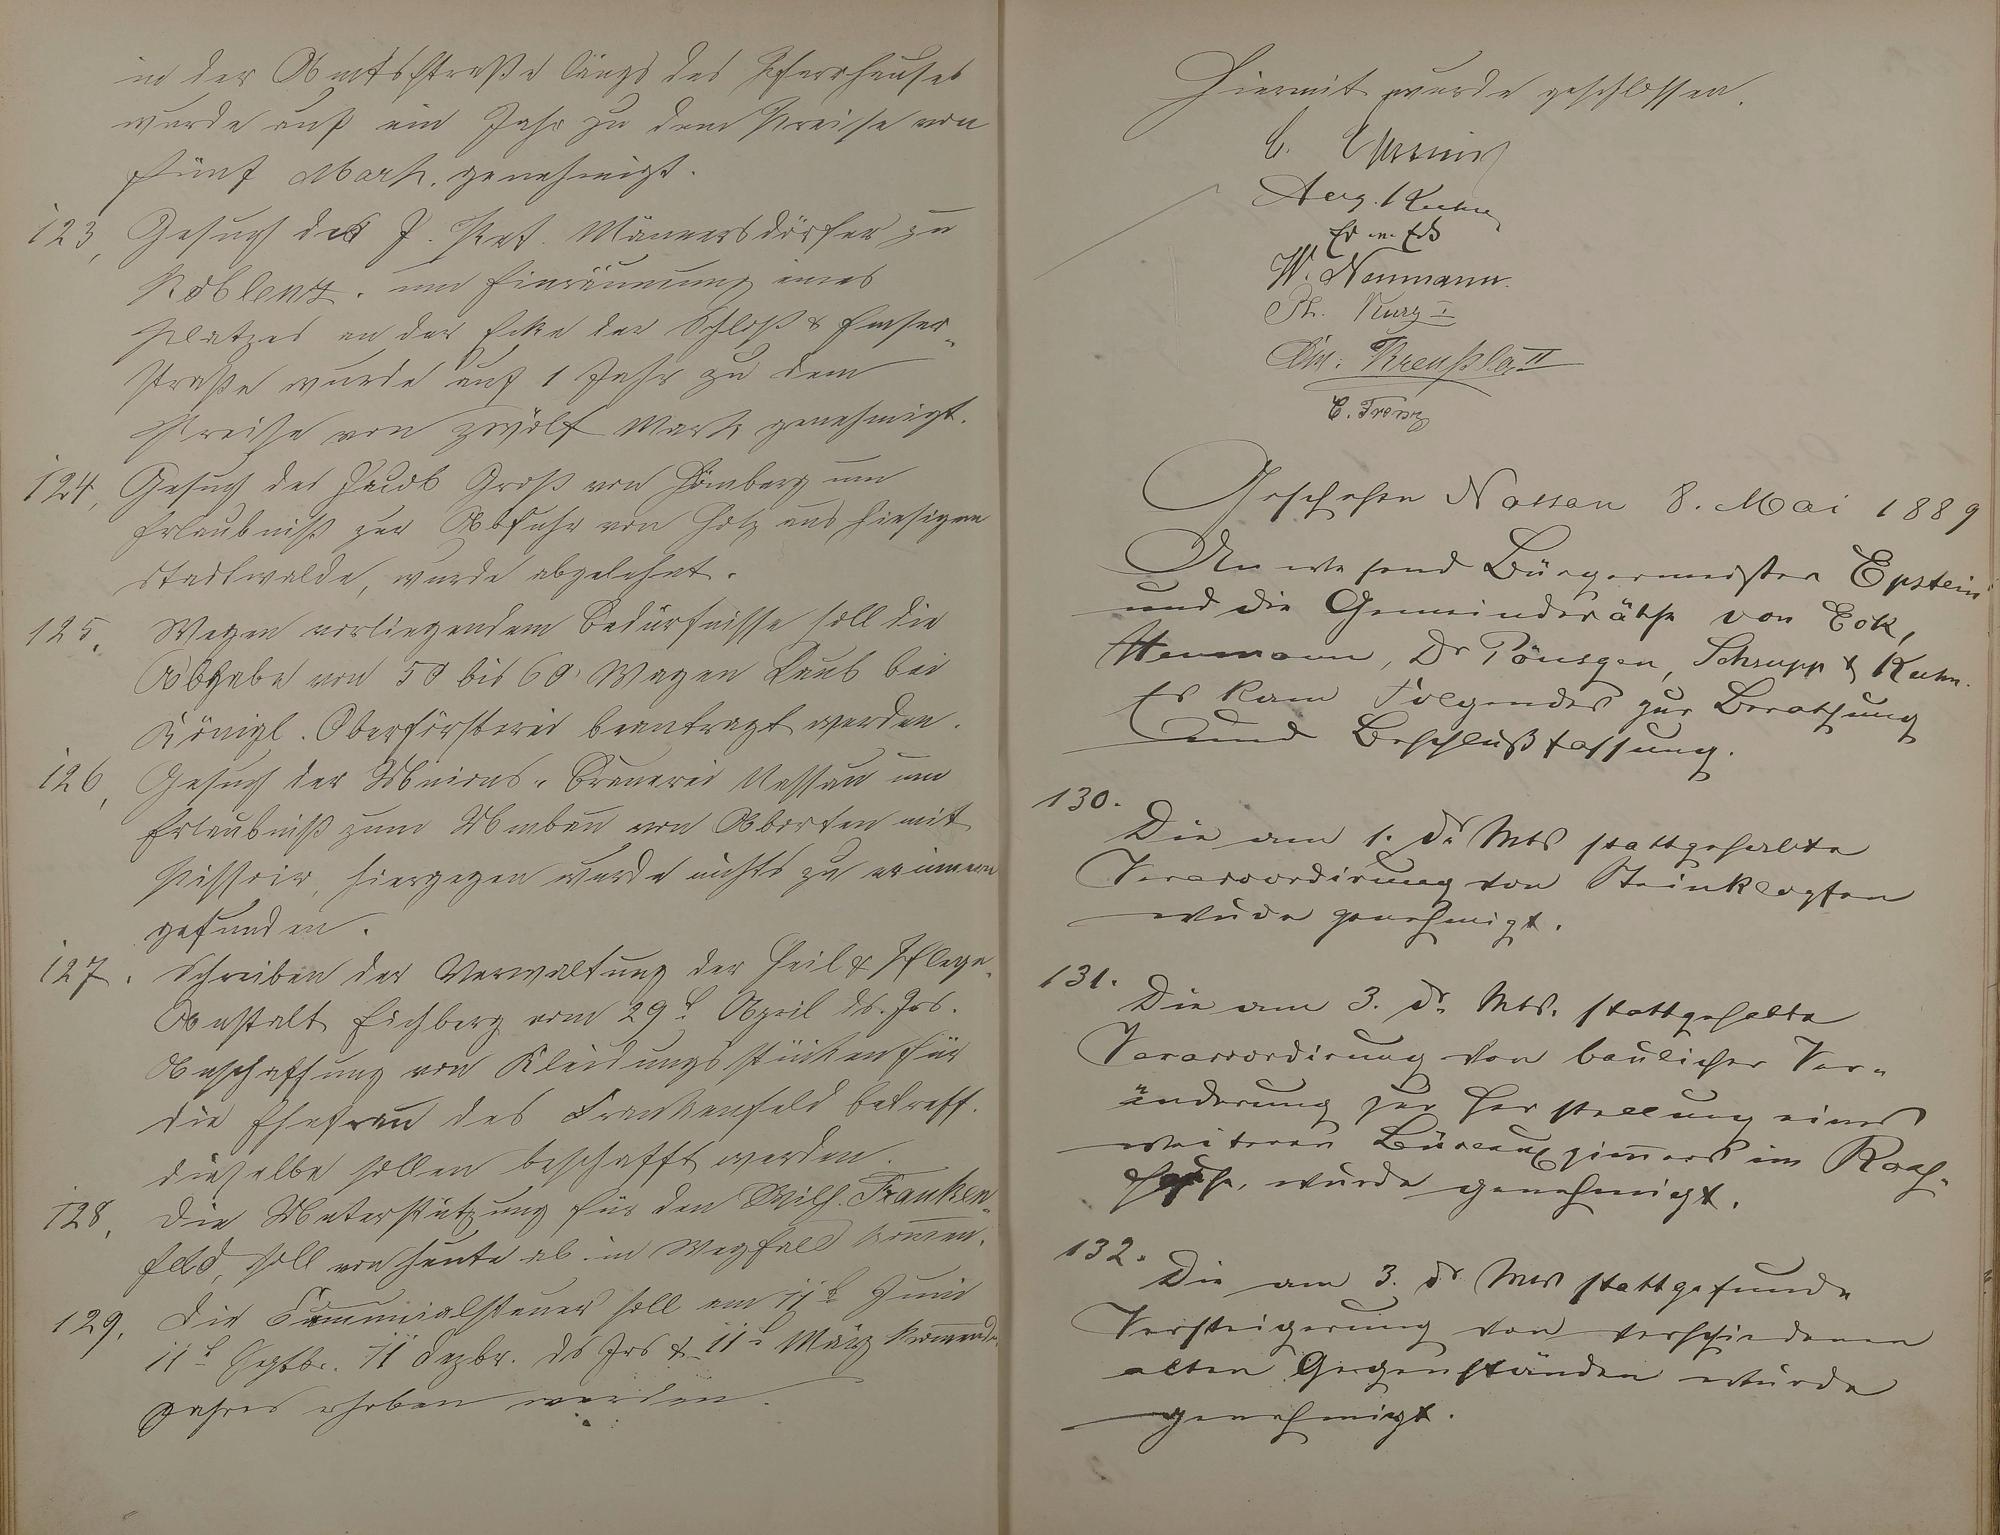 in der Amtsstraße längs des Pfarrhauses
wurde auf ein Jahr zu dem Preise von
fünf Mark. genehmigt.
123, Gesuch des J. Pet. Männersdörfer zu
Koblenz. um Einräumung eines
Platzes an der Ecke der Schloß & Emser-
straße wurde auf 1 Jahr zu dem
Preise von zwölf Mark genehmigt.
124, Gesuch des Jacob Groß von Hömberg um
Erlaubniß zur Abfuhr von Holz aus hiesigem
Stadtwalde, wurde abgelehnt.
125, Wegen vorliegendem Bedürfnisse soll die
Abgabe von 50 bis 60 Wagen Laub bei
Königl. Oberförsterei beantragt werden.
126, Gesuch der Unions-Brauerei Nassau um
Erlaubniß zum Umbau von Aborten mit
Pissoir, hiergegen wurde nichts zu erinnern
gefunden.
127. Schreiben der Verwaltung der Heil & Pflege-
Anstalt Eichberg vom 29t April ds. Jrs.
Anschaffung von Kleidungsstücken für
die Ehefrau des Frankenfeld betreff.
dieselbe sollen beschafft werden.
128, Die Unterstützung für den Wilh. Franken-
feld, soll von heute ab in Wegfall kommen.
129, Die Communialsteuer soll am 11t Juni
11t Septbr. 11 Dezbr. ds Jrs & 11t März kommenden
Jahres erhoben werden.
Hiermit wurde geschlossen.
C. Epstein
Aug. Kuhn
W. Neumann.
Ph. Kurz I
Chr. Kreußler II
C. Trenz
Geschehen Nassau 8. Mai 1889
Anwesend Bürgermeister Epstein
und die Gemeinderäthe von Eck,
Neumann, Dr Pönsgen, Schrupp & Kuhn.
Es kam Folgendes zur Berathung
und Beschlußfassung.
130.
Die am 1. ds Mts stattgehabte
Veraccordirung von Steinklopfen
wurde genehmigt.
131.
Die am 3. ds Mts. stattgehabte
Veraccordirung von baulicher Ver-
änderung zur Herstellung eines
weiteren Büreauzimmers im Rath-
hause, wurde genehmigt.
132.
Die am 3. ds Mts stattgefunde
Versteigerung von verschiedenen
alten Gegenständen wurde
genehmigt.